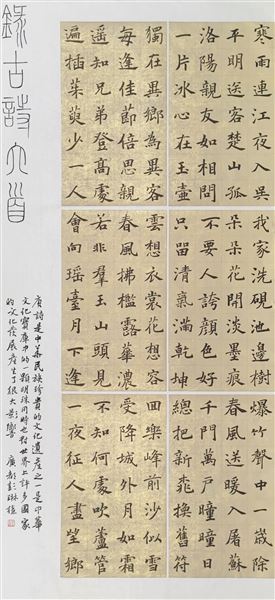 寒雨連江夜入吳
平明送客楚山孤
洛陽親友如相問
一片冰心在玉壺
獨在異鄉為異客
每逢佳節倍思親
遙知兄弟登高處
遍插茱萸少一人
我家洗硯池邊樹
朵朵花開淡墨痕
不要人誇顏色好
只留清氣滿乾坤
雲想衣裳花想容
春風拂檻露華濃
若非羣玉山頭見
會向瑤臺月下逢
爆竹聲中一歲除
春風送暖入屠蘇
千門萬戶曈曈日
總把新桃換舊符
回樂峰前沙似雪
受降城外月如霜
不知何處吹蘆管
一夜征人盡望鄉
錄古詩六首
唐詩是中華民族珍貴的文化遺產之一是中華
文化寶庫中的一顆明珠同時也對世界上許多國家
的文化發展產生了很大影響 廣都彭琳